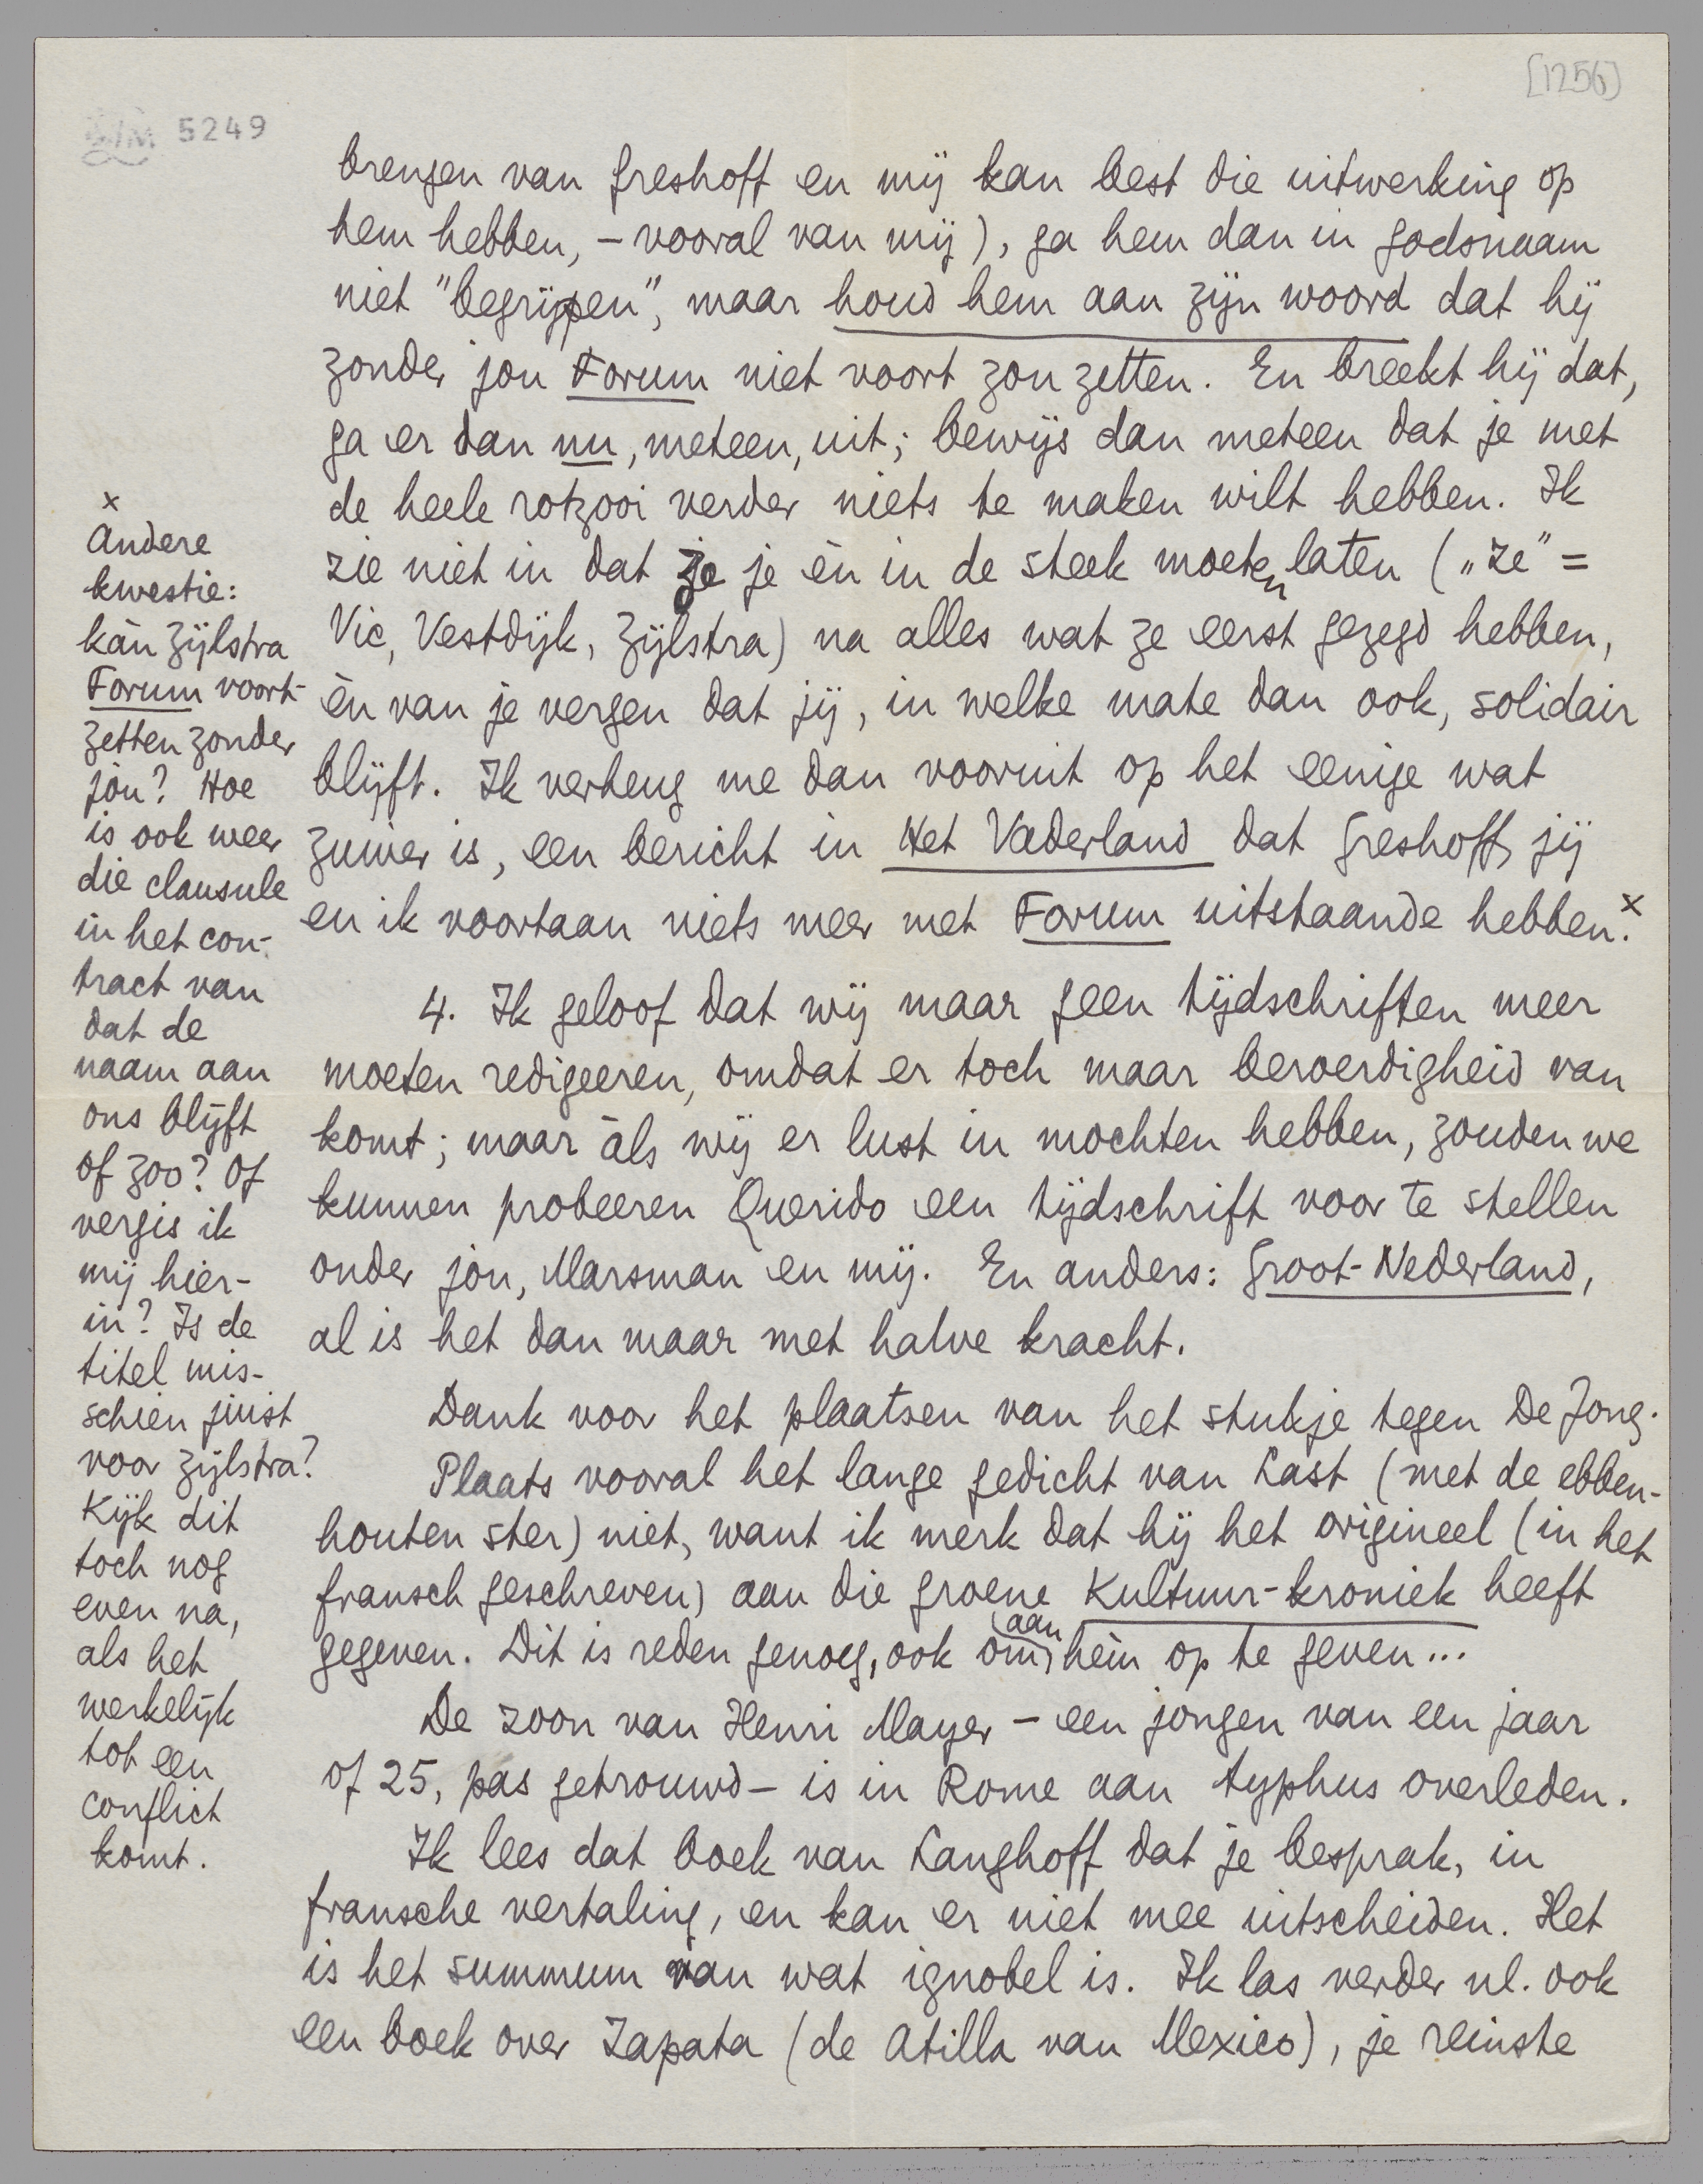 [1256]
LM 5249
brengen van Greshoff en mij kan best die uitwerking op
hem hebben, – vooral van mij), ga hem dan in godsnaam
niet "begrijpen", maar houd hem aan zijn woord dat hij
zonder jou Forum niet voort zou zetten. En breekt hij dat,
ga er dan nu, meteen, uit; bewijs dan meteen dat je met
de heele rotzooi verder niets te maken wilt hebben. Ik
zie niet in dat ze je èn in de steek moeten laten („ze" =
Vic, Vestdijk, Zijlstra) na alles wat ze eerst gezegd hebben,
èn van je vergen dat jij, in welke mate dan ook, solidair
blijft. Ik verheug me dan vooruit op het eenige wat
zuiver is, een bericht in Het Vaderland dat Greshoff, jij
en ik voortaan niets meer met Forum uitstaande hebben.x
4. Ik geloof dat wij maar geen tijdschriften meer
moeten redigeeren, omdat er toch maar beroerdigheid van
komt; maar àls wij er lust in mochten hebben, zouden we
kunnen probeeren Querido een tijdschrift voor te stellen
onder jou, Marsman en mij. En anders: Groot-Nederland,
al is het dan maar met halve kracht.
Dank voor het plaatsen van het stukje tegen De Jong.
Plaats vooral het lange gedicht van Last (met de ebben-
houten ster) niet, want ik merk dat hij het origineel (in het
fransch geschreven) aan die groene Kultuur-kroniek heeft
gegeven. Dit is reden genoeg, ook om aan hèm op te geven...
De zoon van Henri Mayer – een jongen van een jaar
of 25, pas getrouwd – is in Rome aan typhus overleden.
Ik lees dat boek van Langhoff dat je besprak, in
fransche vertaling, en kan er niet mee uitscheiden. Het
is het summum van wat ignobel is. Ik las verder nl. ook
een boek over Zapata (de Atilla van Mexico), je reinste
x
Andere
kwestie:
kàn Zijlstra
Forum voort-
zetten zonder
jou? Hoe
is ook weer
die clausule
in het con-
tract van
dat de
naam aan
ons blijft
of zoo? Of
vergis ik
mij hier-
in? Is de
titel mis-
schien juist
voor Zijlstra?
Kijk dit
toch nog
even na,
als het
werkelijk
tot een
conflict
komt.